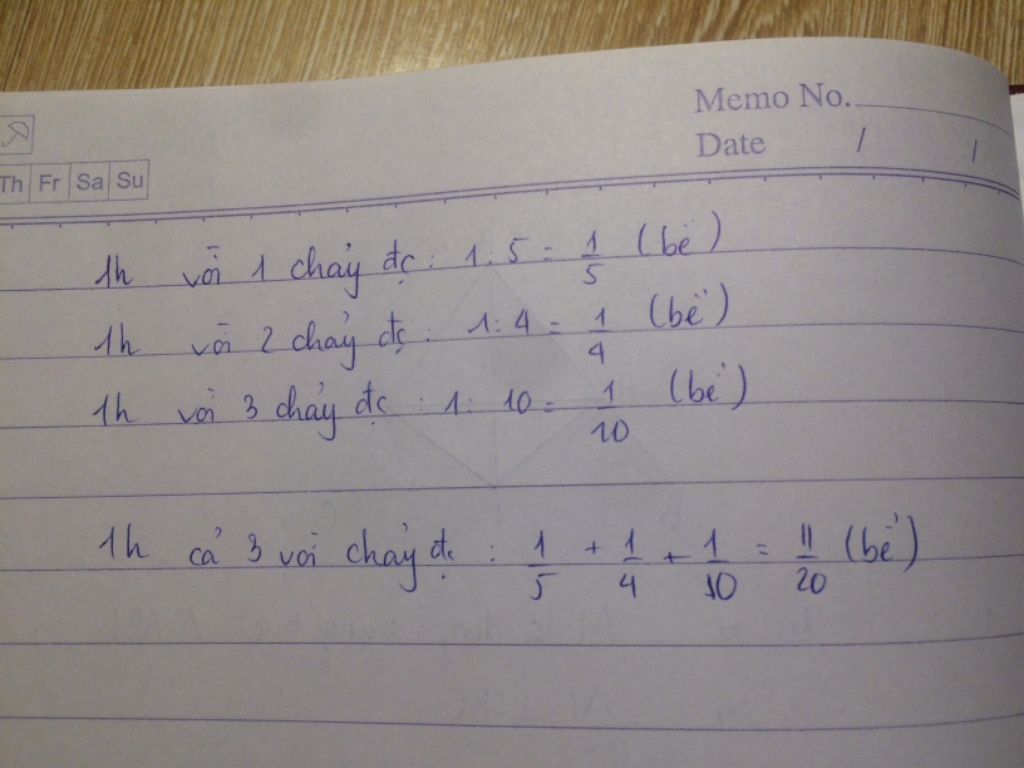 Memo No.
Date / /
Th Fr Sa Su
1h vòi 1 chảy đc : 1 : 5 = 1/5 (bể)
1h vòi 2 chảy đc : 1 : 4 = 1/4 (bể)
1h vòi 3 chảy đc : 1 : 10 = 1/10 (bể)
1h cả 3 vòi chảy đc : 1/5 + 1/4 + 1/10 = 11/20 (bể)